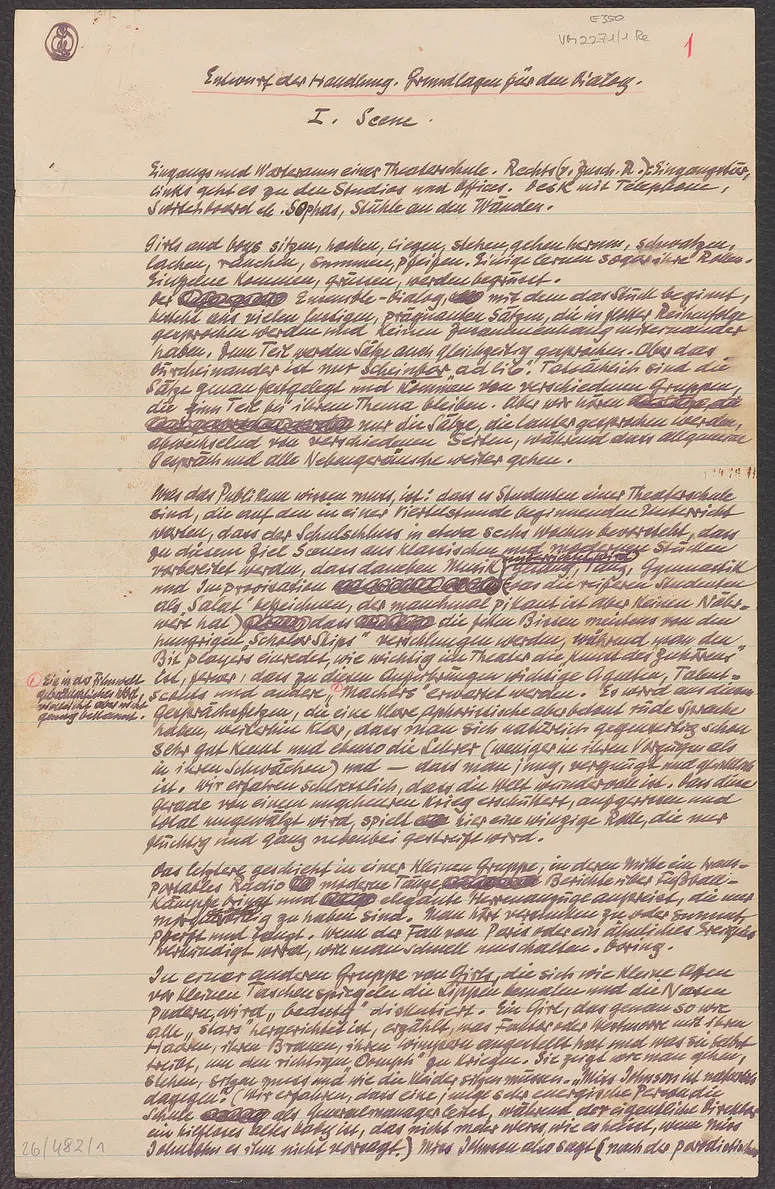 E350
VM 2271/1 Re
1
Entwurf der Handlung. Grundlagen für den Dialog.
I. Scene.
Eingangs und Warteraum einer Theaterschule. Rechts (v. Zusch. R.): Eingangstür,
links geht es zu den Studios und Offices. Desk mit Telephone,
Switchboard etc. Sophas, Stühle an den Wänden.
Girls and boys sitzen, hocken, liegen, stehen, gehen herum, schwatzen,
lachen, rauchen, summen, pfeifen. Einige lernen sogar ihre Rollen.
Einzelne kommen, grüssen, werden begrüsst.
Der Ensemble-Dialog, mit dem das Stück beginnt,
besteht aus vielen lustigen, prägnanten Sätzen, die in flotter Reihenfolge
gesprochen werden und keinen Zusammenhang untereinander
haben. Zum Teil werden Sätze auch gleichzeitig gesprochen. Aber das
Durcheinander ist nur scheinbar "ad lib". Tatsächlich sind die
Sätze genau festgelegt und kommen von verschiedenen Gruppen,
die zum Teil bei ihrem Thema bleiben. Aber wir hören
nur die Sätze, die lauter gesprochen werden,
abwechselnd von verschiedenen Seiten, während das allgemeine
Gespräch und alle Nebengeräusche weiter gehen.
Was das Publikum wissen muss, ist: dass es Studenten einer Theaterschule
sind, die auf den in einer Viertelstunde beginnenden Unterricht
warten, dass der Schulschluss in etwa sechs Wochen bevorsteht, dass
zu diesem Ziel Scenen aus klassischen und modernen Stücken
vorbereitet werden, dass daneben Musik, Tanz, Gymnastik
und Improvisation (was die reiferen Studenten
als "Salat" bezeichnen, der manchmal pikant ist aber keinen Nähr-
wert hat) dass die fetten Bissen meistens von den
hungrigen "Scholarships" verschlungen werden, während man den
Bit players einredet, wie wichtig im Theater die "Kunst des Zuhörens"
ist, ferner, dass zu diesen Aufführungen wichtige Agenten, Talent-
Scouts und andere "Machers" erwartet werden. Es wird aus diesen
Gesprächsfetzen, die eine klare, aphoristische aber
Sprache
haben, weiterhin klar, dass man sich natürlich gegenseitig schon
sehr gut kennt und ebenso die Lehrer (weniger in ihren Vorzügen als
in ihren Schwächen) und — dass man jung, vergnügt und glücklich
ist. Wir erfahren schliesslich, dass die Welt wundervoll ist. Dass diese
gerade von einem ungeheuren Krieg erschüttert, aufgerissen und
total umgewälzt wird, spielt hier eine winzige Rolle, die nur
flüchtig und ganz nebenbei gestreift wird.
Ein in der Filmwelt
gebräuchliches Wort,
vielleicht aber nicht
genug bekannt.
Das letztere geschieht in einer kleinen Gruppe, in deren Mitte ein trans-
portables Radio moderne Tänze, Berichte über Fussball-
kämpfe bringt und elegante Herrenanzüge anpreist, die nur
zu haben sind. Man hört versunken zu oder summt,
pfeift und tanzt. Wenn der Fall von Paris oder ein ähnliches Ereignis
verkündigt wird, will man schnell umschalten. Boring.
In einer anderen Gruppe von Girls, die sich wie kleine Affen
vor kleinen Taschenspiegeln die Lippen bemalen und die Nasen
pudern, wird "beauty" diskutiert. Ein Girl, das genau so wie
alle "Stars" hergerichtet ist, erzählt, was Faktor oder Westmore mit ihren
Haaren, ihren Brauen, ihren Wimpern angestellt hat und was sie selbst
treibt, um den richtigen "Oomph" zu kriegen. Sie zeigt wie man gehen,
stehen, sitzen muss und wie die Kleider sitzen müssen. "Miss Johnson ist natürlich
dagegen." (Wir erfahren, dass eine junge sehr energische Person die
Schule als Generalmanager leitet, während der eigentliche Direktor
ein hilfloses altes Baby ist, das nicht mehr weiss, wie es heisst, wenn Miss
Johnson es ihm nicht vorsagt.) Miss Johnson also sagt (nach der parodistischen
26/482/1